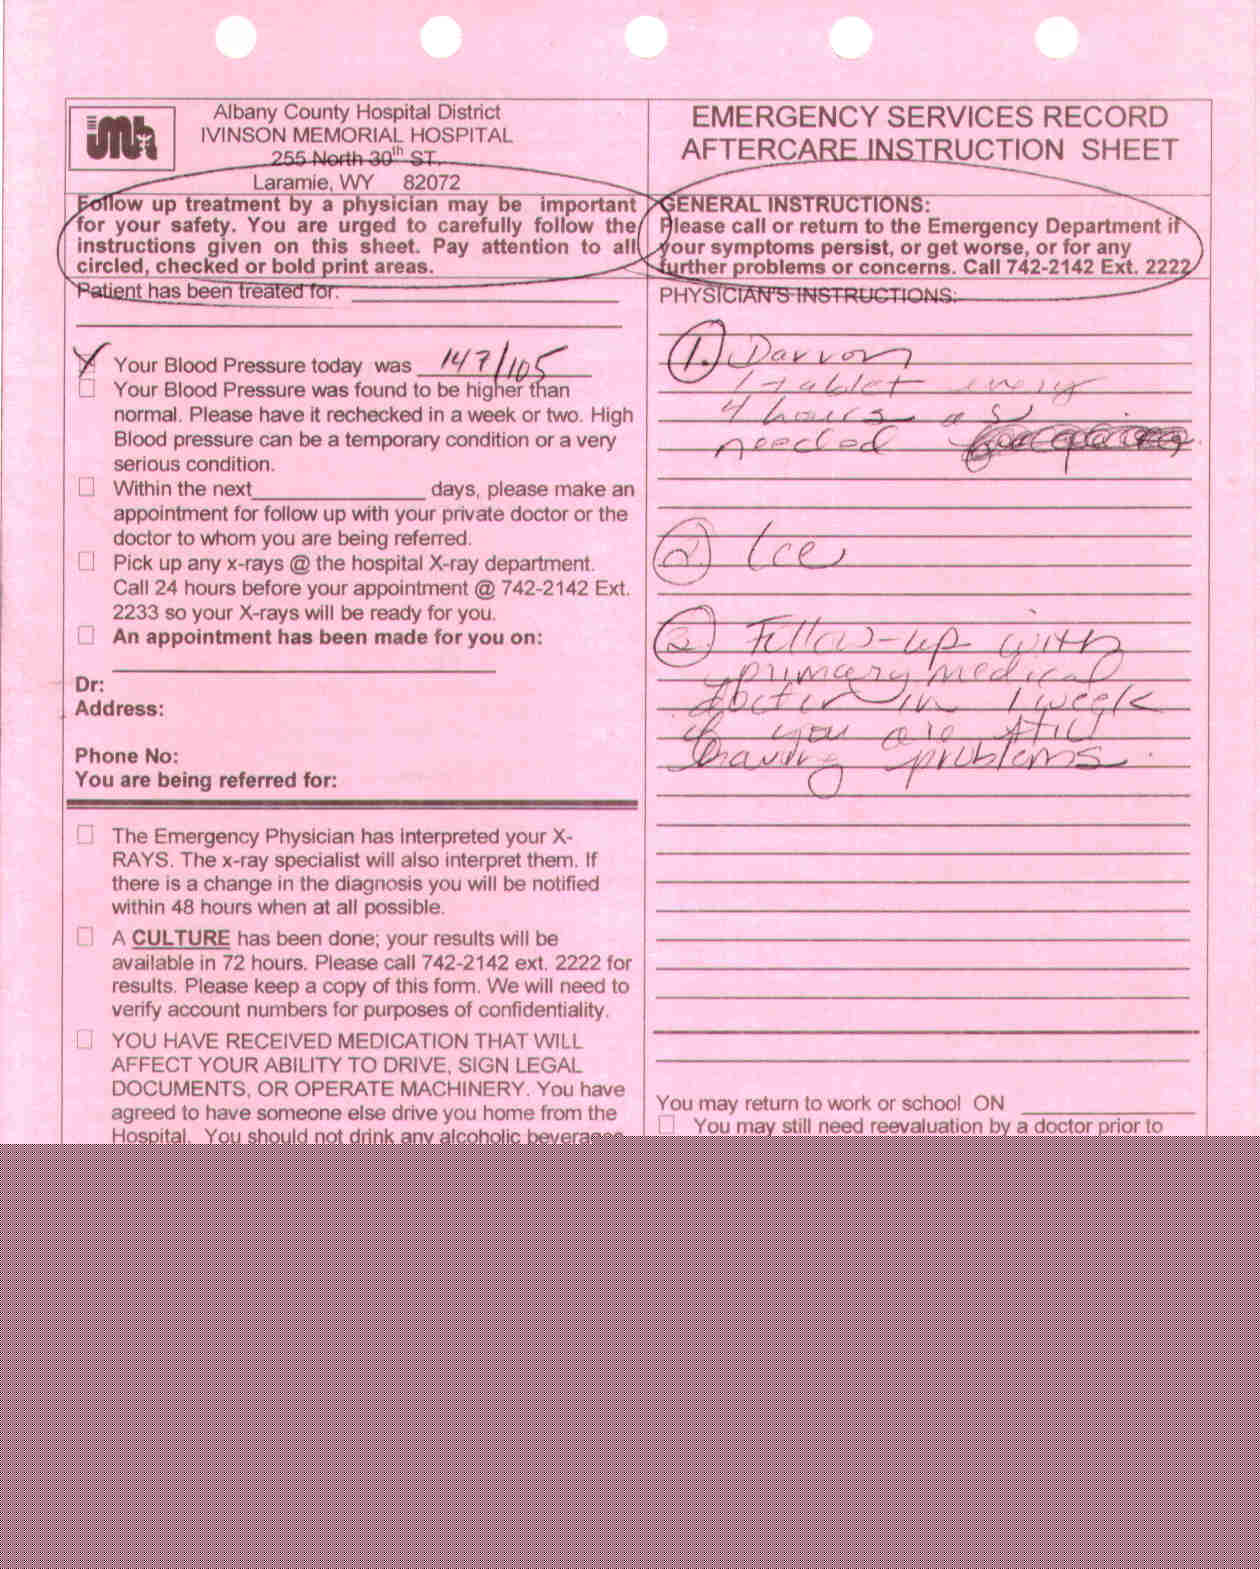 imh
Albany County Hospital District
IVINSON MEMORIAL HOSPITAL
255 North 30th ST.
Laramie, WY 82072
Follow up treatment by a physician may be important
for your safety. You are urged to carefully follow the
instructions given on this sheet. Pay attention to all
circled, checked or bold print areas.
Patient has been treated for:
Your Blood Pressure today was 147/105
Your Blood Pressure was found to be higher than
normal. Please have it rechecked in a week or two. High
Blood pressure can be a temporary condition or a very
serious condition.
Within the next days, please make an
appointment for follow up with your private doctor or the
doctor to whom you are being referred.
Pick up any x-rays @ the hospital X-ray department.
Call 24 hours before your appointment @ 742-2142 Ext.
2233 so your X-rays will be ready for you.
An appointment has been made for you on:
Dr:
Address:
Phone No:
You are being referred for:
The Emergency Physician has interpreted your X-
RAYS. The x-ray specialist will also interpret them. If
there is a change in the diagnosis you will be notified
within 48 hours when at all possible.
A CULTURE has been done; your results will be
available in 72 hours. Please call 742-2142 ext. 2222 for
results. Please keep a copy of this form. We will need to
verify account numbers for purposes of confidentiality.
YOU HAVE RECEIVED MEDICATION THAT WILL
AFFECT YOUR ABILITY TO DRIVE, SIGN LEGAL
DOCUMENTS, OR OPERATE MACHINERY. You have
agreed to have someone else drive you home from the
Hospital. You should not drink any alcoholic beverages
EMERGENCY SERVICES RECORD
AFTERCARE INSTRUCTION SHEET
GENERAL INSTRUCTIONS:
Please call or return to the Emergency Department if
your symptoms persist, or get worse, or for any
further problems or concerns. Call 742-2142 Ext. 2222
PHYSICIAN'S INSTRUCTIONS:
1. Darvon
1 tablet every
4 hours as
needed
2. Ice
3. Follow-up with
primary medical
doctor in 1 week
if you are still
having problems.
You may return to work or school ON
You may still need reevaluation by a doctor prior to